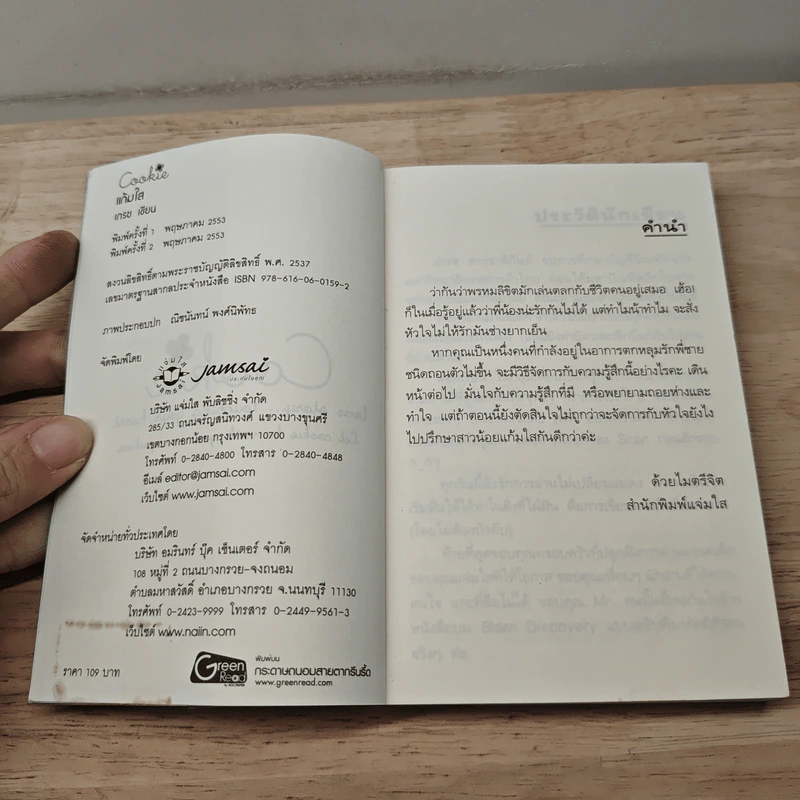 Cookie
แก้มใส
เกรซ เฮียน
พิมพ์ครั้งที่ 1 พฤษภาคม 2553
พิมพ์ครั้งที่ 2 พฤษภาคม 2553
สงวนลิขสิทธิ์ตามพระราชบัญญัติลิขสิทธิ์ พ.ศ. 2537
เลขมาตรฐานสากลประจำหนังสือ ISBN 978-616-06-0159-2
ภาพประกอบปก ณิชนันทน์ พงศ์นิพัทธ
จัดพิมพ์โดย
แจ่มใส
jamsai
jamsai
บริษัท แจ่มใส พับลิชชิ่ง จำกัด
285/33 ถนนจรัญสนิทวงศ์ แขวงบางขุนศรี
เขตบางกอกน้อย กรุงเทพฯ 10700
โทรศัพท์ 0-2840-4800 โทรสาร 0-2840-4848
อีเมล์ editor@jamsai.com
เว็บไซต์ www.jamsai.com
จัดจำหน่ายทั่วประเทศโดย
บริษัท อมรินทร์ บุ๊ค เซ็นเตอร์ จำกัด
108 หมู่ที่ 2 ถนนบางกรวย-จงถนอม
ตำบลมหาสวัสดิ์ อำเภอบางกรวย จ.นนทบุรี 11130
โทรศัพท์ 0-2423-9999 โทรสาร 0-2449-9561-3
เว็บไซต์ www.naiin.com
ราคา 109 บาท
Green Read
พิมพ์บน
กระดาษถนอมสายตากรีนรี้ด
www.greenread.com
คำนำ
ว่ากันว่าพรหมลิขิตมักเล่นตลกกับชีวิตคนอยู่เสมอ เฮ้อ!
ก็ในเมื่อรู้อยู่แล้วว่าพี่น้องน่ะรักกันไม่ได้ แต่ทำไมน้าทำไม จะสั่ง
หัวใจไม่ให้รักมันช่างยากเย็น
หากคุณเป็นหนึ่งคนที่กำลังอยู่ในอาการตกหลุมรักพี่ชาย
ชนิดถอนตัวไม่ขึ้น จะมีวิธีจัดการกับความรู้สึกนี้อย่างไรคะ เดิน
หน้าต่อไป มั่นใจกับความรู้สึกที่มี หรือพยายามถอยห่างและ
ทำใจ แต่ถ้าตอนนี้ยังตัดสินใจไม่ถูกว่าจะจัดการกับหัวใจยังไง
ไปปรึกษาสาวน้อยแก้มใสกันดีกว่าค่ะ
ด้วยไมตรีจิต
สำนักพิมพ์แจ่มใส